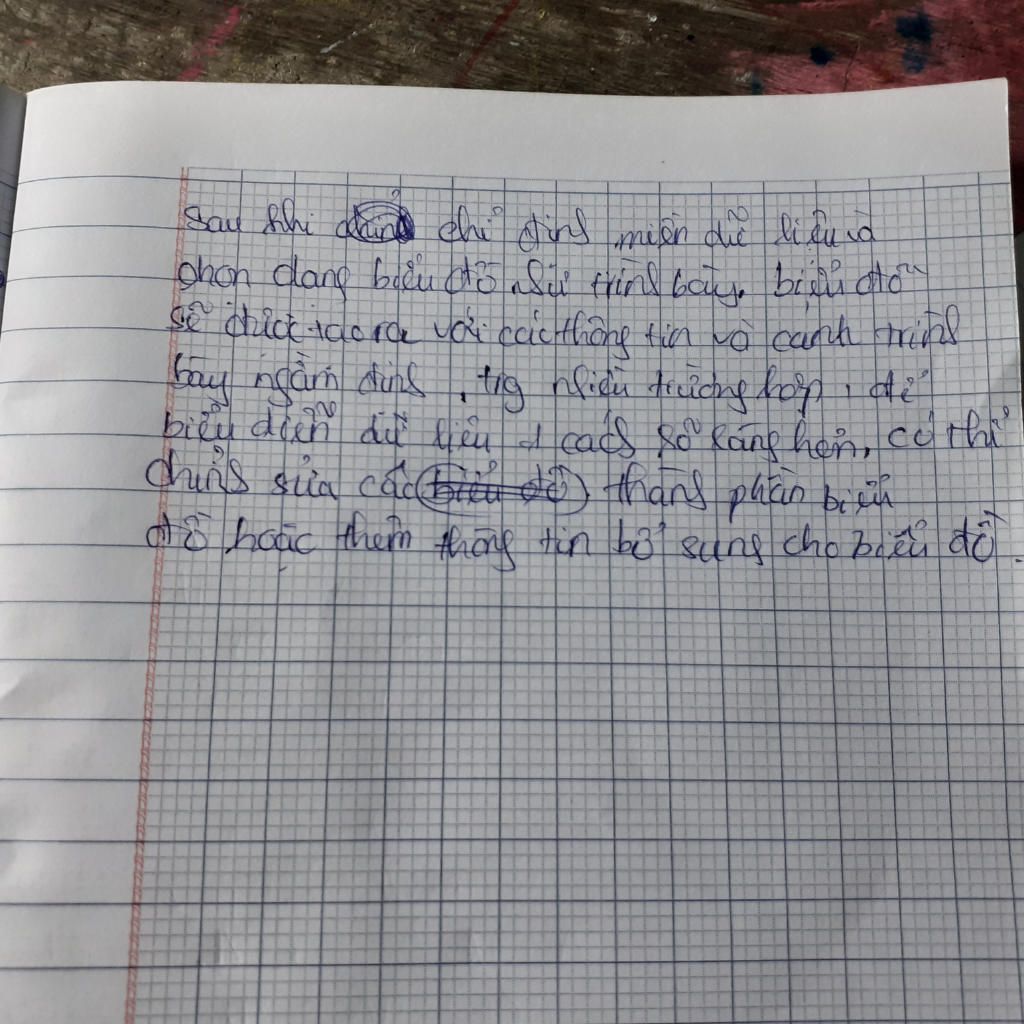 Sau khi chỉ định miền dữ liệu và
chọn dạng biểu đồ trình bày, biểu đồ
sẽ được tạo ra với các thông tin và cách trình
bày ngầm định, trg nhiều trường hợp, để
biểu diễn dữ liệu 1 cách rõ ràng hơn, có thể
chỉnh sửa các thành phần biểu
đồ hoặc thêm thông tin bổ sung cho biểu đồ.